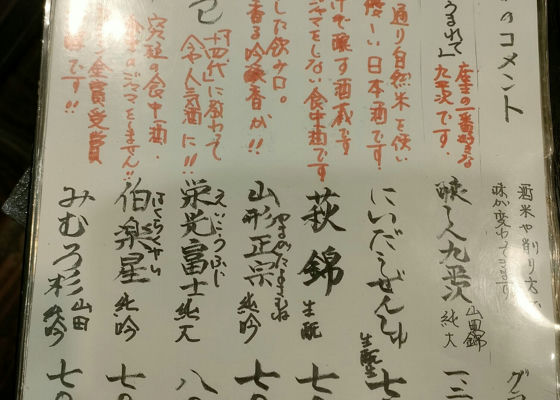 のコメント
酒米や削り
味が変わってきます
うまれて」
座主の一番好きな
九平次です。
醸し人九平次
山田錦
純大
一三
通り自然米を使い
優しい日本酒です
にいだしぜんしゅ
生酛
七
けで醸す酒蔵です
ジャマをしない食中酒です
萩錦
生酛
七〇
した飲み口。
香る吟醸香が!!
やまがたまさむね
山形正宗
純吟
七〇
「十四代」に教わって
今人気酒に!!
えいこうふじ
栄光富士
純大
八
究極の食中酒。
食事のジャマをしません!!
はくらくせい
伯楽星
純吟
七〇
金賞受賞
です!!
みむろ杉
山田
純吟
七〇